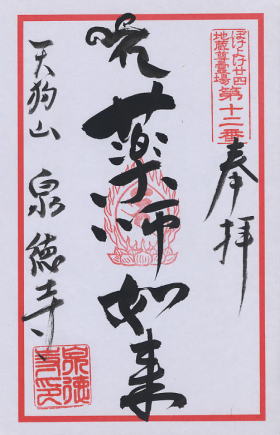 ぼけよけ廿四
地蔵尊靈場
第十二番
奉拝
薬師如来
天狗山 泉徳寺
泉徳
寺印